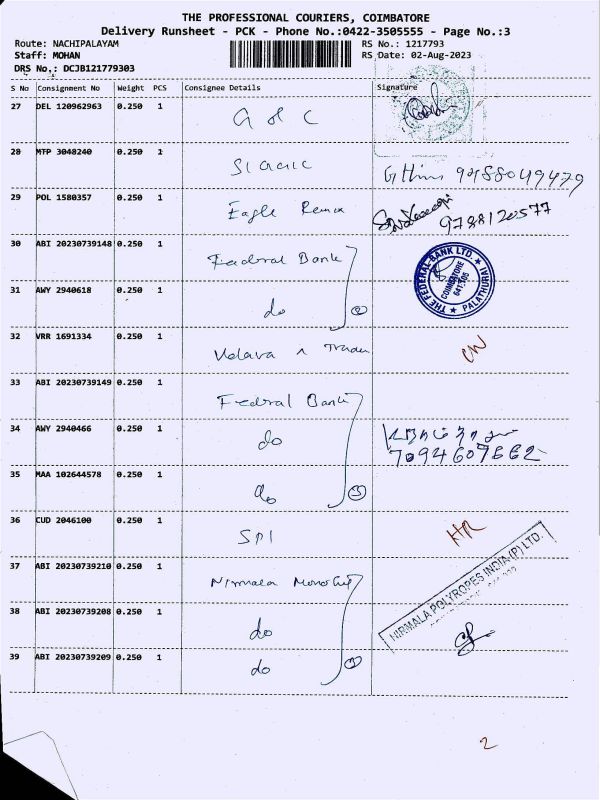 THE PROFESSIONAL COURIERS, COIMBATORE
Delivery Runsheet - PCK - Phone No.:0422-3505555 - Page No.:3
Route: NACHIPALAYAM RS No.: 1217793
Staff: MOHAN RS Date: 02-Aug-2023
DRS No.: DCJB121779303
S No Consignment No Weight PCS Consignee Details Signature
27 DEL 120962963 0.250 1
28 MTP 3048240 0.250 1
29 POL 1580357 0.250 1 Eagle
9788120577
30 ABI 20230739148 0.250 1 Federal Bank
THE FEDERAL BANK LTD. COIMBATORE 641105 PALATHURAI
31 AWY 2940618 0.250 1 do 2
32 VRR 1691334 0.250 1
33 ABI 20230739149 0.250 1 Federal Bank
34 AWY 2940466 0.250 1 do
7094607662
35 MAA 102644578 0.250 1 do 3
36 CUD 2046100 0.250 1 SPI
37 ABI 20230739210 0.250 1 Nirmala
NIRMALA POLYROPES INDIA (P) LTD.
38 ABI 20230739208 0.250 1 do
39 ABI 20230739209 0.250 1 do
2